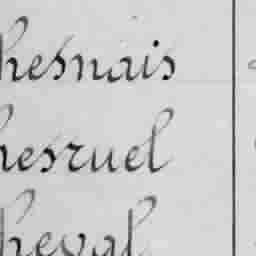 hesnais
hesruel
heval